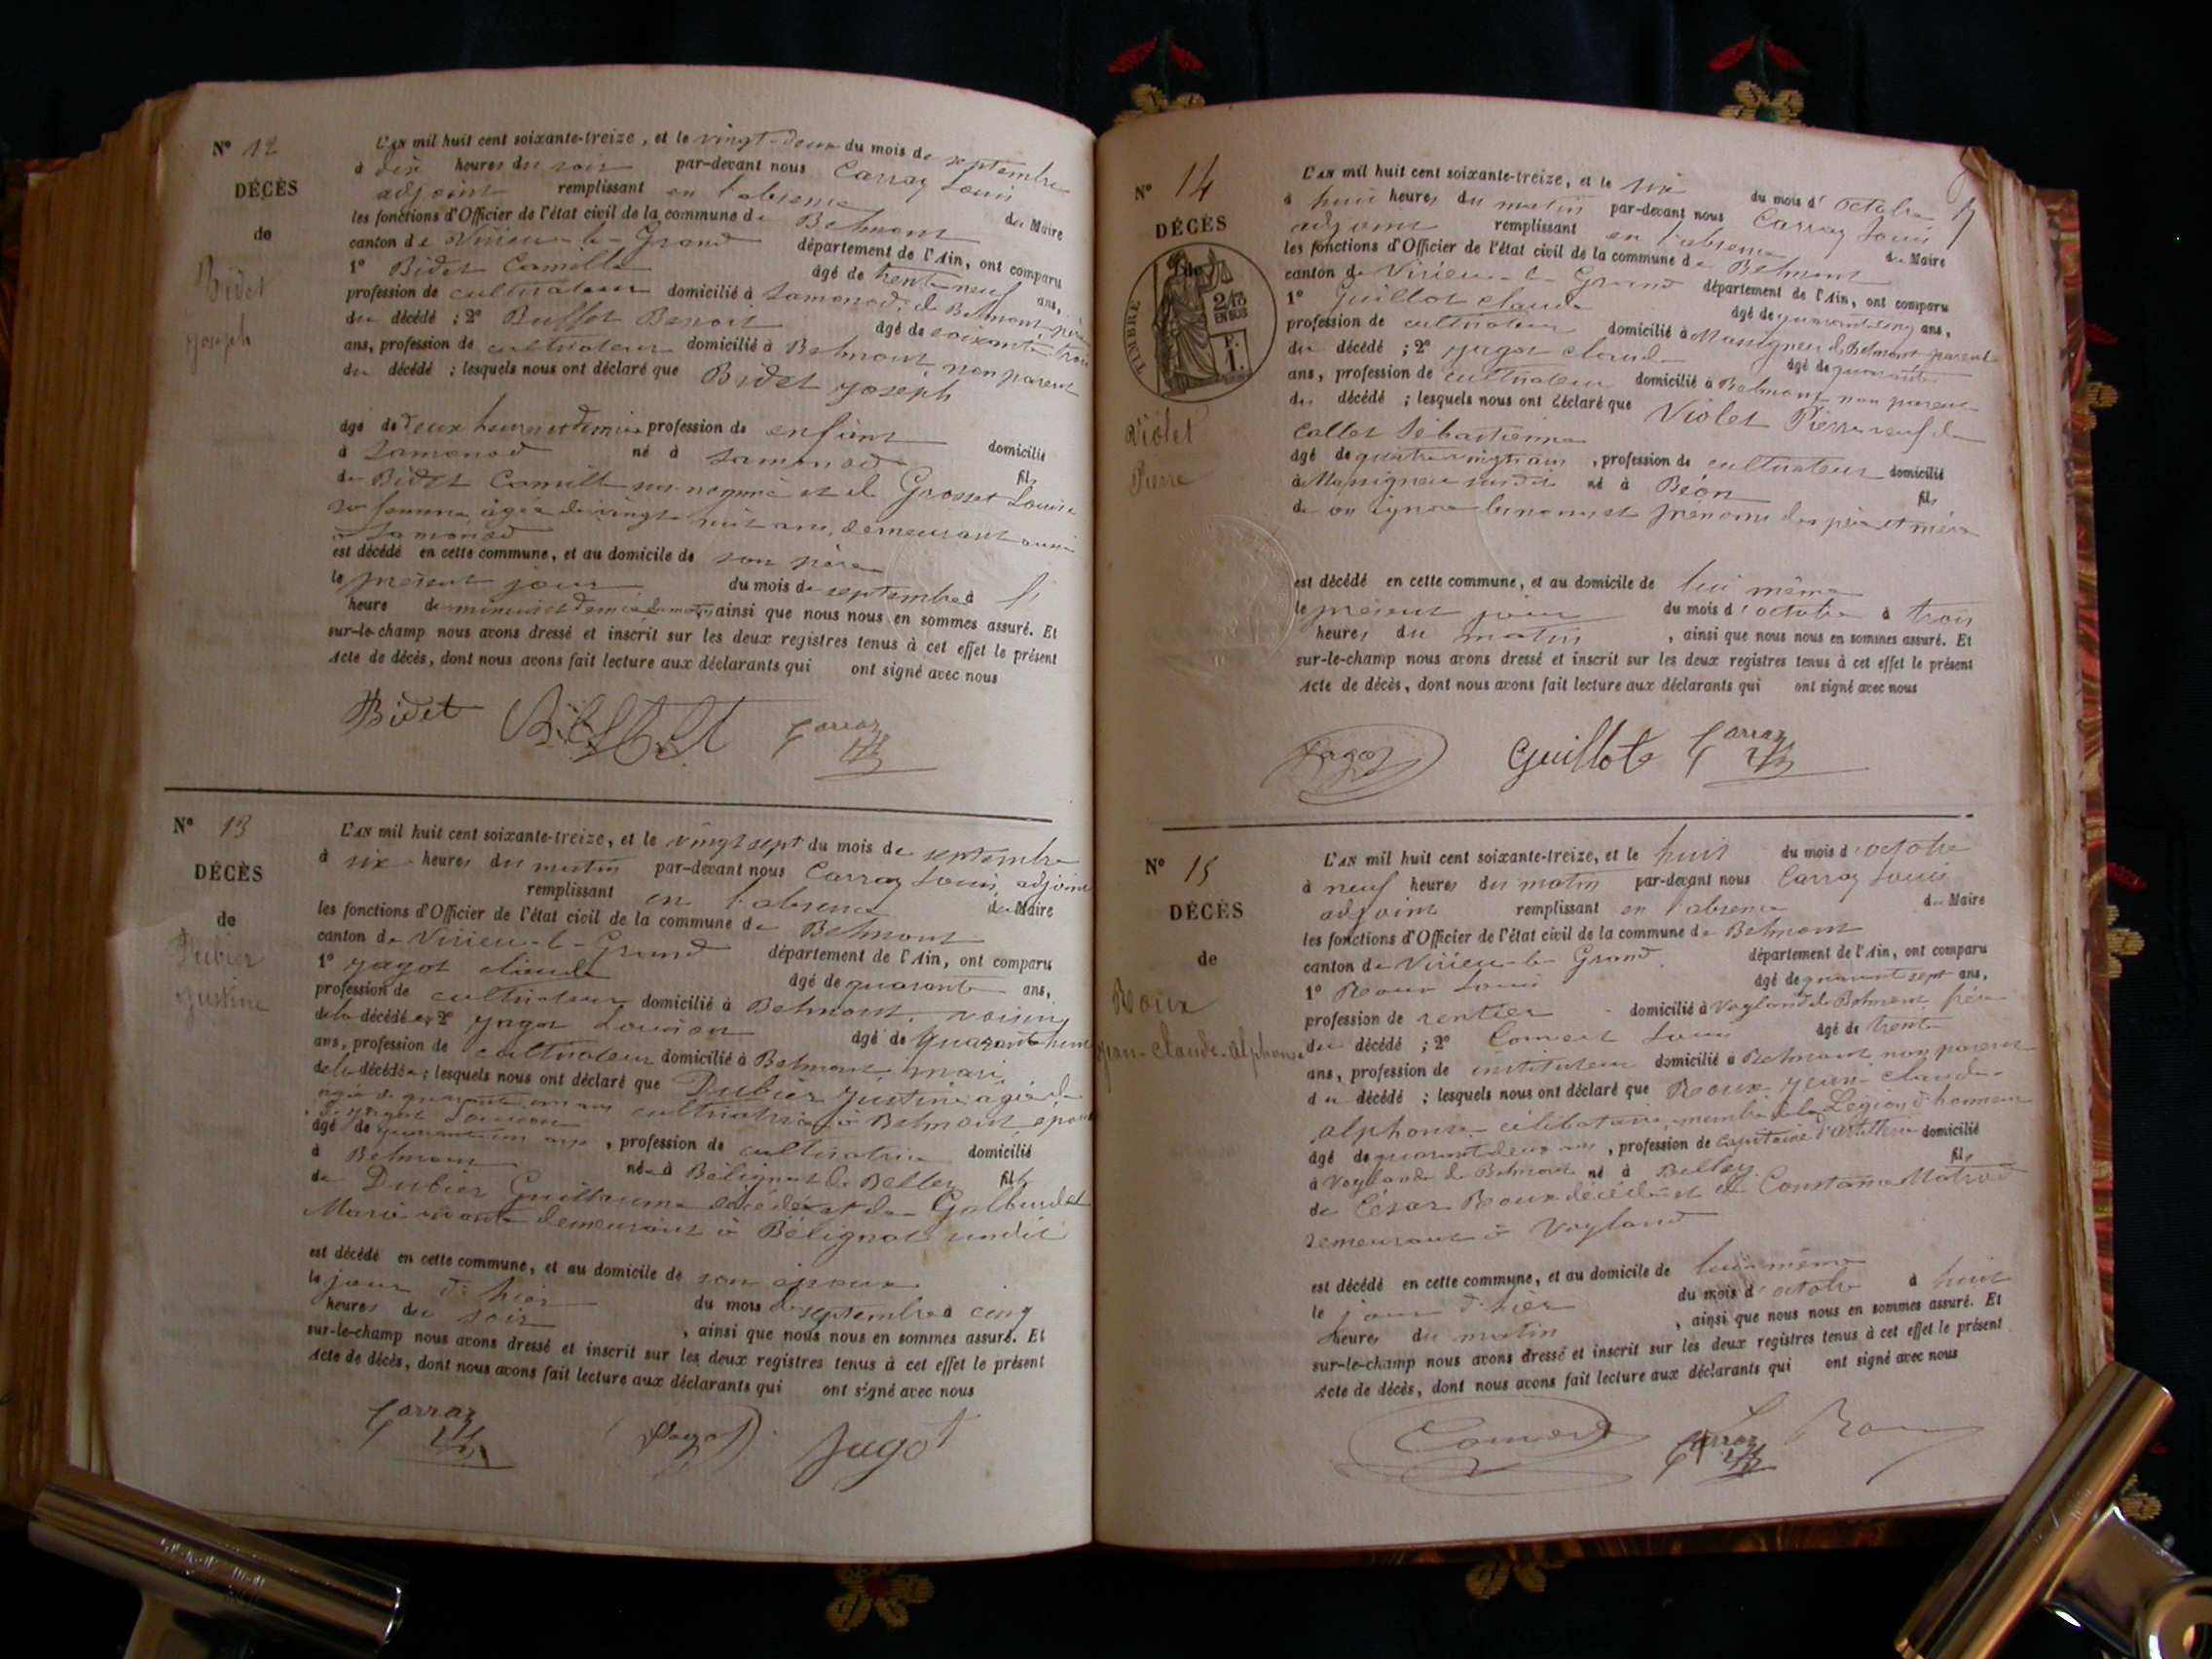 Nº 12
DÉCÈS
de
Bidet
Joseph
L'AN mil huit cent soixante-treize, et le vingt-deux du mois de septembre
à dix heures du soir par-devant nous Carraz Louis
adjoint remplissant en l'absence du Maire
les fonctions d'Officier de l'état civil de la commune de Belmont
canton de Virieu-le-Grand département de l'Ain, ont comparu
1º Bidet Camille âgé de trente neuf ans,
profession de cultivateur domicilié à Samonod de Belmont, père
du décédé ; 2º Buffet Benoit âgé de soixante trois
ans, profession de cultivateur domicilié à Belmont, non parent
du décédé ; lesquels nous ont déclaré que Bidet Joseph
âgé de deux heures et demie profession de enfant domicilié
à Samonod né à Samonod fils
de Bidet Camille sus-nommé et de Grosset Louise
sa femme, âgée de vingt huit ans, demeurant aussi
à Samonod
est décédé en cette commune, et au domicile de son père
le présent jour du mois de septembre à
heure de minuit et demie du matin ainsi que nous nous en sommes assuré. Et
sur-le-champ nous avons dressé et inscrit sur les deux registres tenus à cet effet le présent
Acte de décès, dont nous avons fait lecture aux déclarants qui ont signé avec nous
Bidet Buffet Carraz
Nº 13
DÉCÈS
de
Dubier
Justine
L'AN mil huit cent soixante-treize, et le vingt sept du mois de septembre
à six heures du matin par-devant nous Carraz Louis, adjoint
remplissant en l'absence du Maire
les fonctions d'Officier de l'état civil de la commune de Belmont
canton de Virieu-le-Grand département de l'Ain, ont comparu
1º Jagot claude âgé de quarante ans,
profession de cultivateur domicilié à Belmont, voisin
de la décédée, 2º Jagot Louison âgé de quarante
ans, profession de cultivateur domicilié à Belmont, mari
de la décédée ; lesquels nous ont déclaré que Dubier Justine âgée de
cultivatrice à Belmont, épouse
de Jagot Louison
âgé de , profession de cultivatrice domicilié
à Belmont née à Bélignat de Belley fille
de Dubier Guillaume décédé et de Galburdet
Marie vivante demeurant à Bélignat susdit
est décédé en cette commune, et au domicile de son époux
le jour d'hier du mois de septembre à cinq
heures du soir , ainsi que nous nous en sommes assuré. Et
sur-le-champ nous avons dressé et inscrit sur les deux registres tenus à cet effet le présent
Acte de décès, dont nous avons fait lecture aux déclarants qui ont signé avec nous
Carraz Jagot Jagot
Nº 14
DÉCÈS
de
TIMBRE
2/10
EN SUS
F.
1.
Violet
Pierre
L'AN mil huit cent soixante-treize, et le six du mois d'octobre
à huit heures du matin par-devant nous Carraz Louis
adjoint remplissant en l'absence du Maire
les fonctions d'Officier de l'état civil de la commune de Belmont
canton de Virieu-le-Grand département de l'Ain, ont comparu
1º Guillot claude âgé de quarante cinq ans,
profession de cultivateur domicilié à Massigneu de Belmont parent
du décédé ; 2º Jagot claude âgé de quarante
ans, profession de cultivateur domicilié à Belmont non parent
du décédé ; lesquels nous ont déclaré que Violet Pierre veuf de
Callet Sébastienne
âgé de quatre vingts ans , profession de cultivateur domicilié
à Massigneu susdit né à Béon fils
de on ignore les noms et prénoms des père et mère
est décédé en cette commune, et au domicile de lui même
le présent jour du mois d'octobre à trois
heures du matin , ainsi que nous nous en sommes assuré. Et
sur-le-champ nous avons dressé et inscrit sur les deux registres tenus à cet effet le présent
Acte de décès, dont nous avons fait lecture aux déclarants qui ont signé avec nous
Jagot Guillot Carraz
Nº 15
DÉCÈS
de
Roux
Jean-Claude-Alphonse
L'AN mil huit cent soixante-treize, et le huit du mois d'octobre
à neuf heures du matin par-devant nous Carraz Louis
adjoint remplissant en l'absence du Maire
les fonctions d'Officier de l'état civil de la commune de Belmont
canton de Virieu-le-Grand département de l'Ain, ont comparu
1º Roux Louis âgé de quarante sept ans,
profession de rentier domicilié à Vogland de Belmont, frère
du décédé ; 2º Louis âgé de trente
ans, profession de instituteur domicilié à Belmont, non parent
du décédé ; lesquels nous ont déclaré que Roux Jean-Claude-
Alphonse célibataire, membre de la Légion d'honneur
âgé de quarante deux ans , profession de capitaine d'artillerie domicilié
à Vogland de Belmont né à Belley fils
de César Roux décédé et de Constance Matrod
demeurant à Vogland
est décédé en cette commune, et au domicile de lui-même
le jour d'hier du mois d'octobre à huit
heures du matin , ainsi que nous nous en sommes assuré. Et
sur-le-champ nous avons dressé et inscrit sur les deux registres tenus à cet effet le présent
Acte de décès, dont nous avons fait lecture aux déclarants qui ont signé avec nous
Carraz Roux